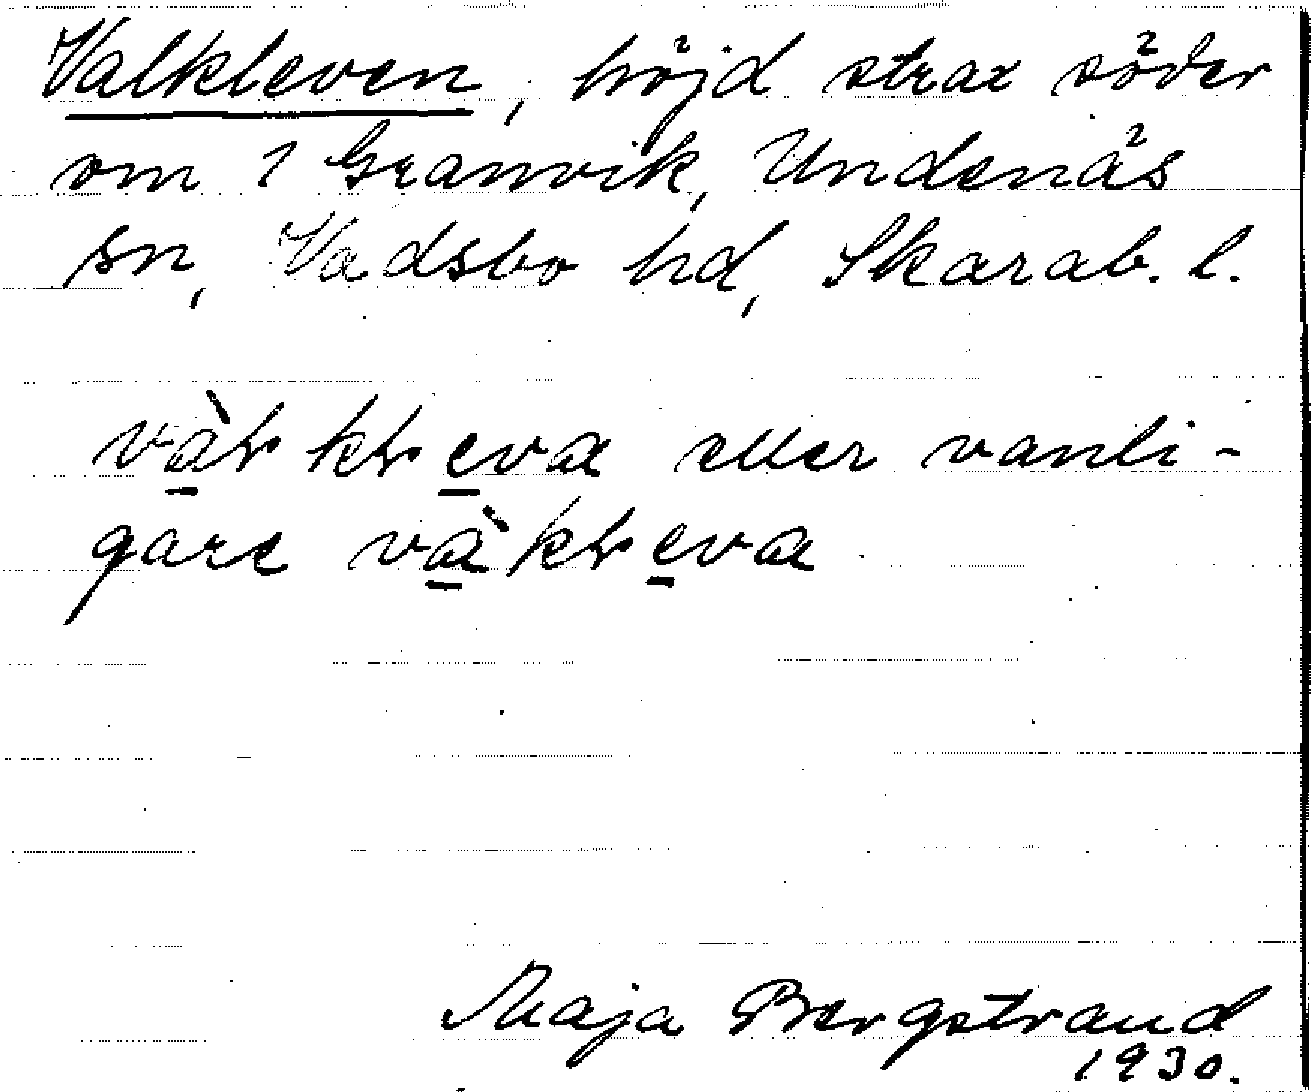 Valkleven, höjd strax söder
om 1 Granvik, Undenäs
sn, Vadsbo hd, Skarab. l.
eller vanli-
gare
Maja Bergstrand
1930.